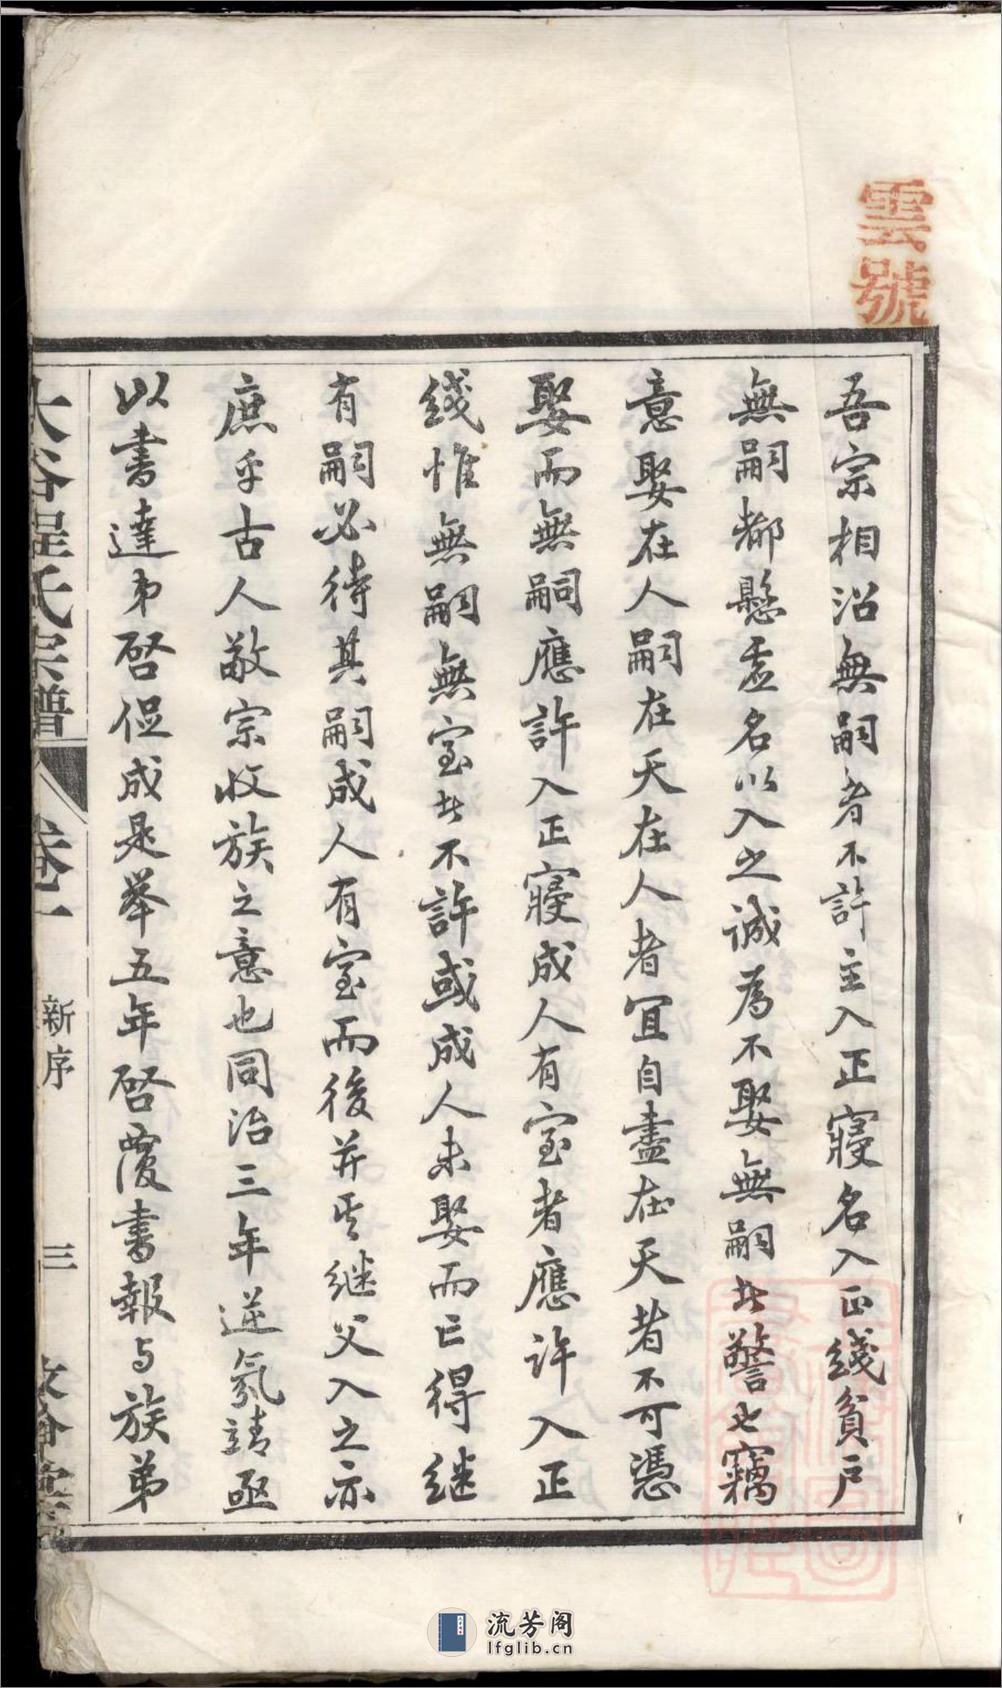 雲號
吾宗相沿無嗣者不許主入正寢名入正綫貧戶
無嗣都懸虛名以入之誠為不娶無嗣者警也竊
意娶在人嗣在天在人者宜自盡在天者不可憑
娶而無嗣應許入正寢成人有室者應許入正
綫惟無嗣無室者不許或成人未娶而亡得継
有嗣必待其嗣成人有室而後并其継父入之亦
庶乎古人敬宗收族之意也同治三年逆氛靖亟
以書達弟啓促成是举五年啓覆書報与族弟
大谷程氏宗譜
卷一
新序
三
敘倫堂
流芳阁
lfglib.cn